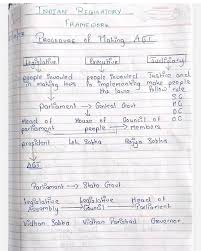 INDIAN REGULATORY
FRAMEWORK
PROCEDURE of Making ACT
Legislative Executive Judiciary
people Involved people Involved Justice and
in making laws in implementing make people
the laws follow rule
S.C
Parliament → Central Govt H.C
D.C
Head of House of Council of
parliament people → Members
president Lok Sabha Rajya Sabha
ACT
Parliament → State Govt
Legislative Legislative Head of
Assembly Council Parliament
Vidhan Sabha Vidhan Parishad Governor